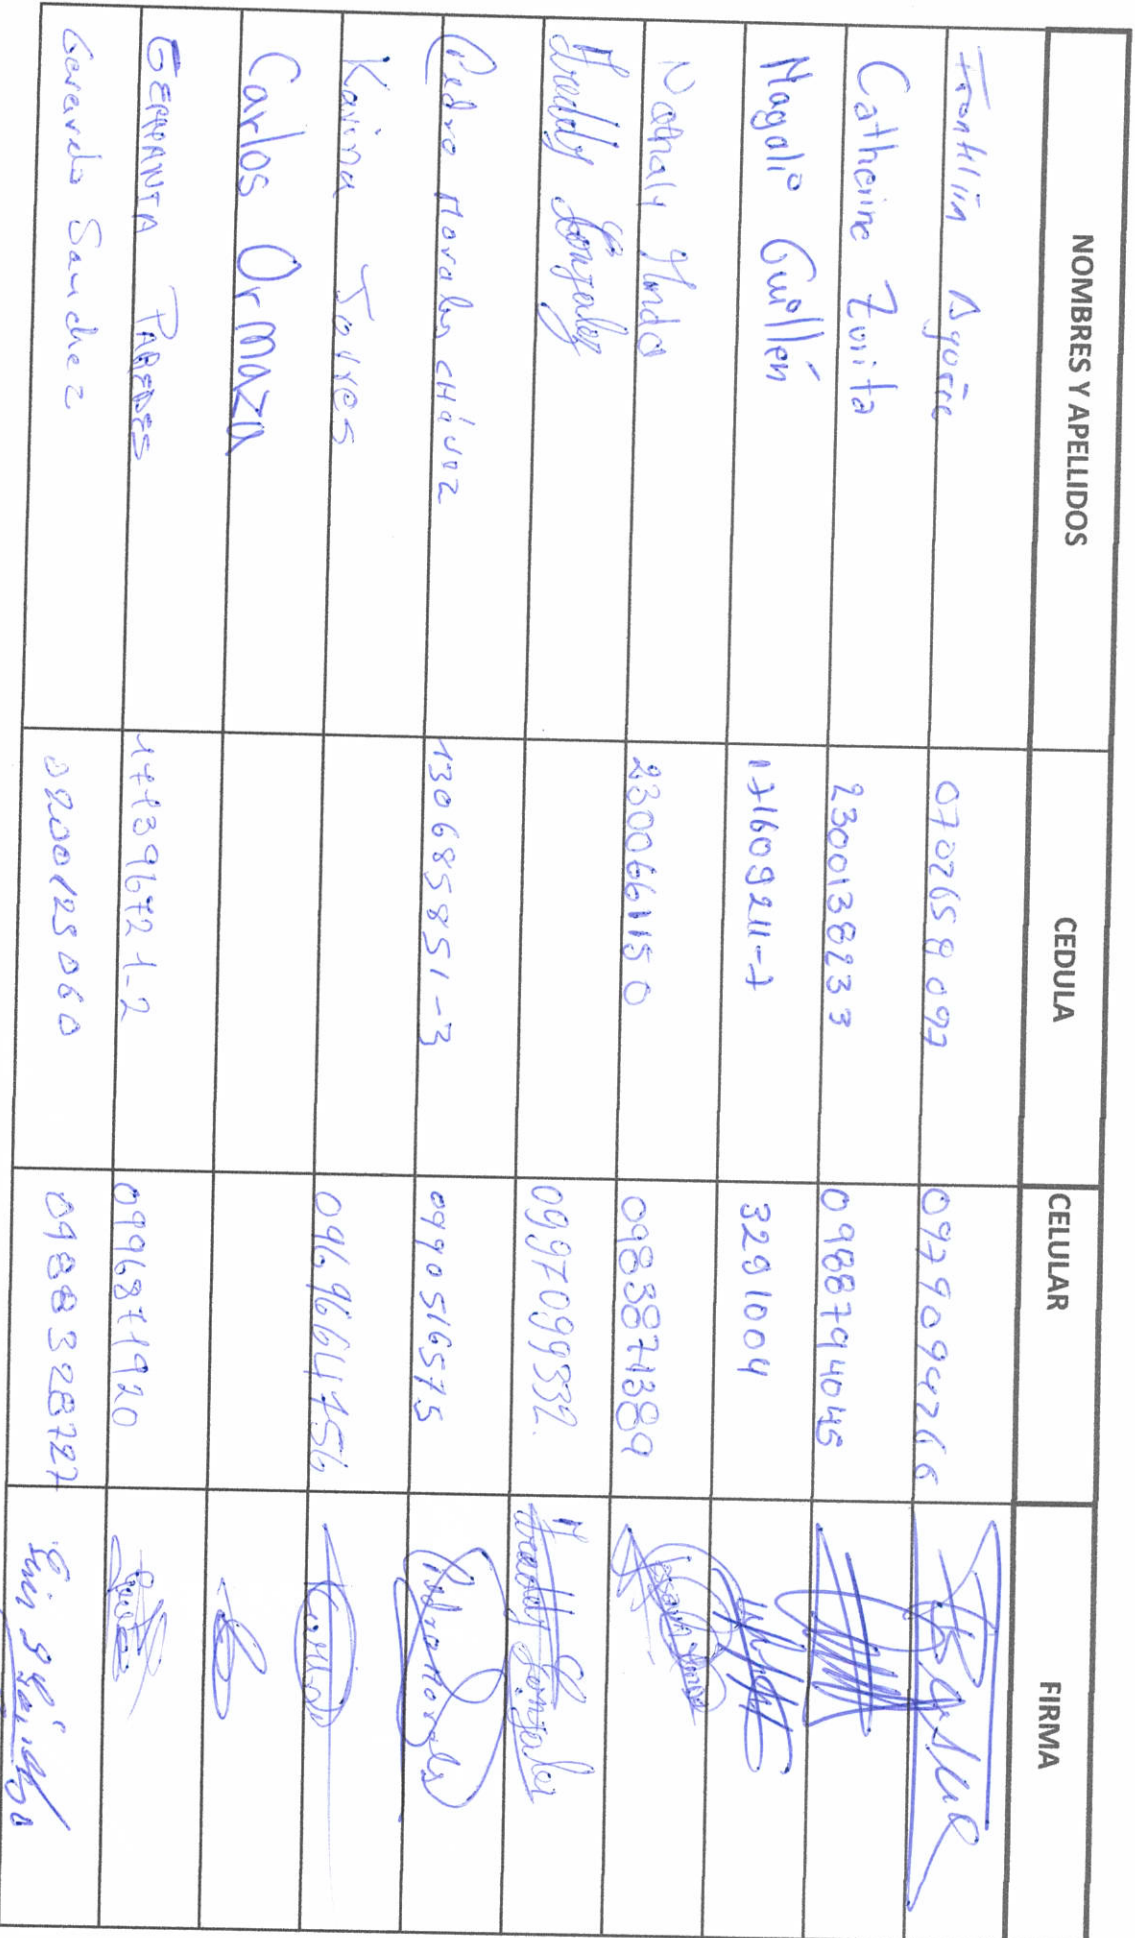 NOMBRES Y APELLIDOS CEDULA CELULAR FIRMA
Franklin Aguirre 0702658097 0979094266
Catherine Zurita 2300138233 0988794045
Magali Guillén 171609211-7 3291004
Nathaly Hondo 2300661150 0983871389
Freddy Gonzalez 0997099332. Freddy Gonzalez
Pedro Morales CHávez 130685851-3 0990516575 Pedro Morales
Karina Torres 0969664756
Carlos Ormaza
GERMANIA PAREDES 171396721-2 0996871920
Gerardo Sanchez 0200125060 0988328727